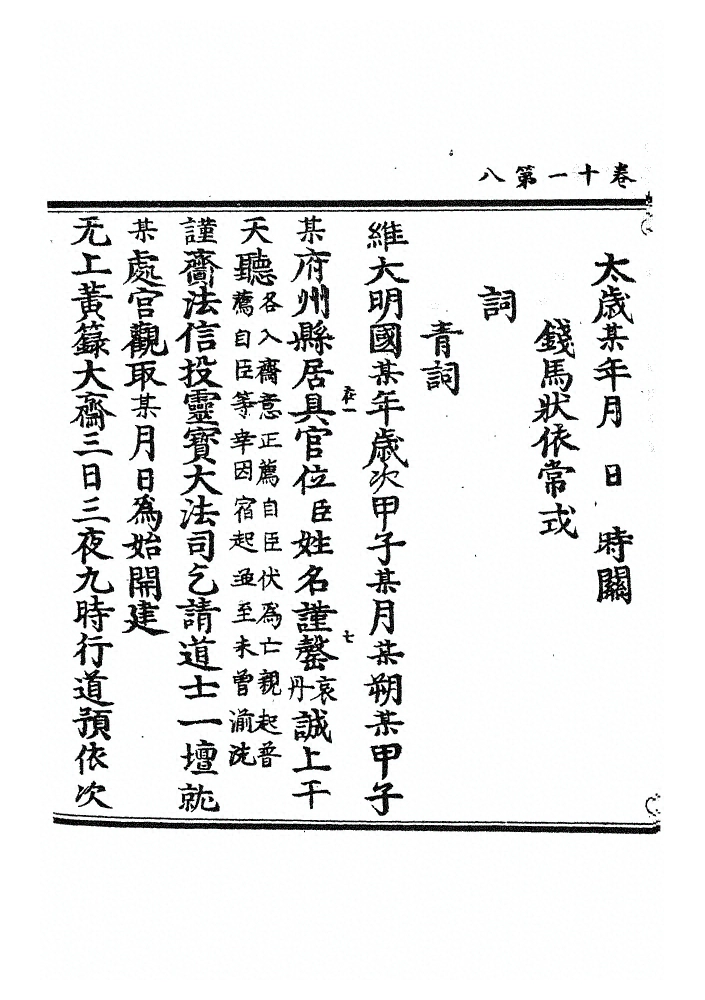 卷十一第八
太歲某年月　日　時關
錢馬狀依常式
詞
青詞
維大明國某年歲次甲子某月某朔某甲子
某府州縣居具官位臣姓名謹罄哀丹誠上干
天聽各入齋意正薦自臣伏爲亡親起普薦自臣等幸因宿起遇至未曾湔洗
謹齎法信投靈寳大法司乞請道士一壇就
某處宫觀取某月日爲始開建
无上黃籙大齋三日三夜九時行道預依次